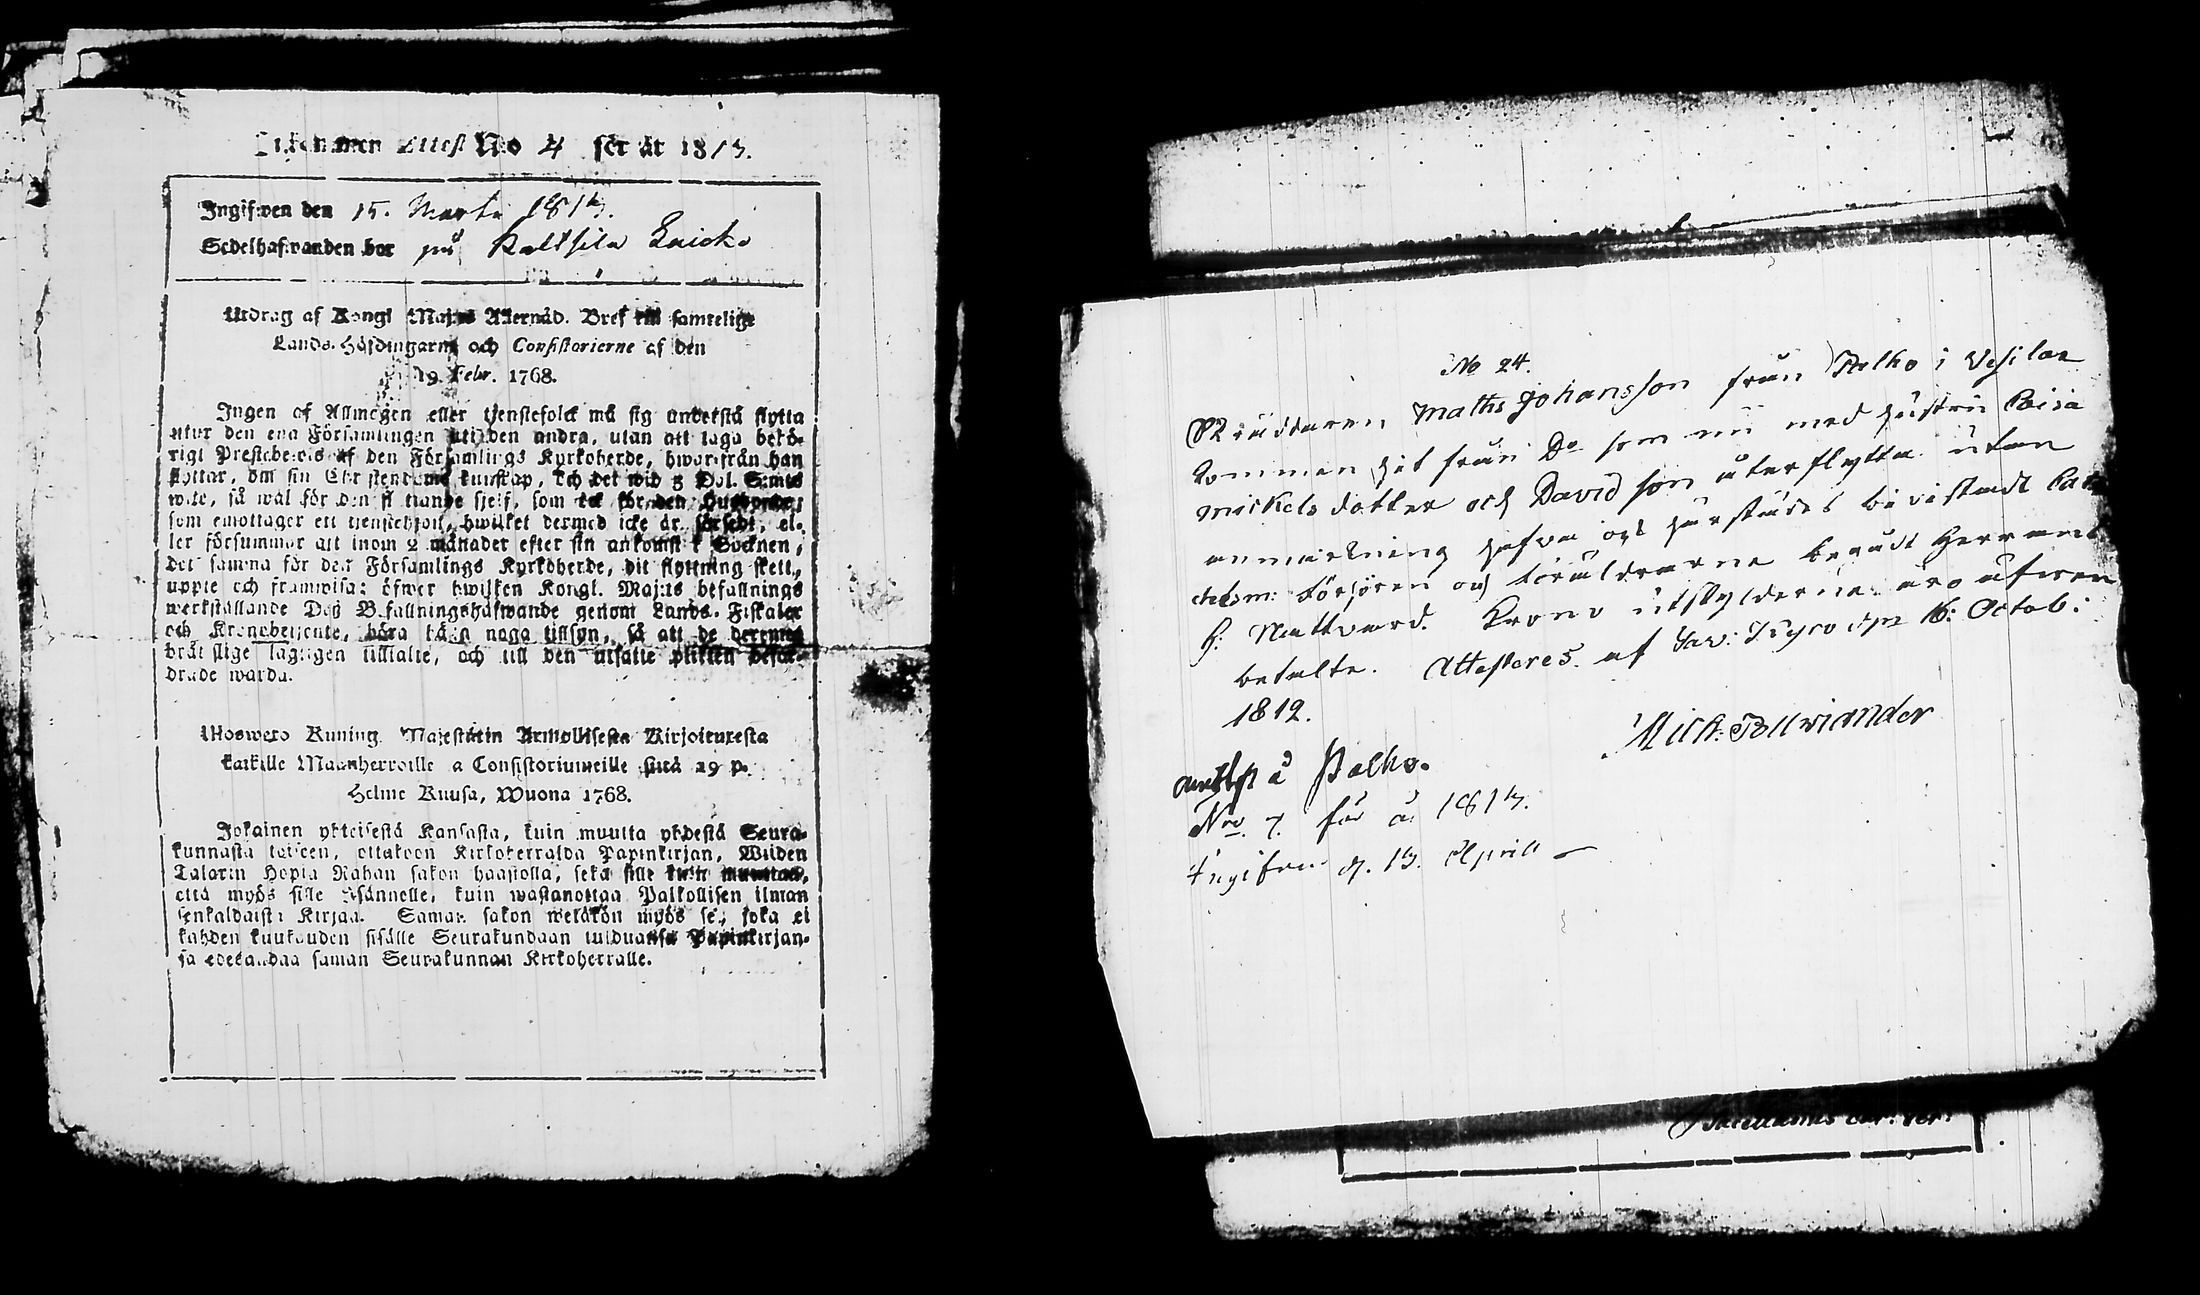 Inkommen Attest No 4 för år 1813.
Ingifwen den 15. Martii 1813.
Sedelhafwanden bor på Kaltsila
Utdrag af Kongl Maj:ts Allernåd. Bref till samtelige
Lands-Höfdingarne och Consistorierne af den
19. Febr. 1768.
Ingen af Allmogen eller tjenstefolck må sig anderstå flytta
utur den ena Församlingen uti den andra, utan att taga behö-
rigt Prestebewis af den Församlings Kyrkoherde, hwarifrån han
flyttar, om sin Christendoms kunskap, och det wid 3 Dal. S:mts
wite, så wäl för den flyttande sjelf, som ock för den Husbonde,
som emottager ett tjenstehjon, hwilket dermed icke är försedt, el-
ler försummar att inom 2 månader efter sin ankomst i Socknen,
det samma för den Församlings Kyrkoherde, dit flyttning skett,
uppte och framwisa: öfwer hwilken Kongl. Maj:ts befallnings
werkställande Deß Befallningshafwande genom Lands-Fiskaler
och Kronobetjente, böra hafwa noga tillsyn, så att de deremot
brått slige lagligen tilltalte, och till den utsatte plikten befor-
drade warda.
Uloswero Kuning. Majestätin Armollisesta Kirjoituxesta
kaikille Maanherroille ja Consistoriumeille siitä 19 p.
Helme Kuusa, Wuona 1768.
Jokainen yhteisestä Kansasta, kuin muutta yhdestä Seura-
kunnasta toiseen, ottakoon Kirkoherralda Papinkirjan, Wiiden
Talarin Hopia Rahan sakon haastolla, sekä sille kuin muuttaa,
että myös sille Isännelle, kuin wastanottaa Palkollisen ilman
senkaldaista Kirjaa. Saman sakon wetäkön myös se, joka ei
kahden kuukauden sisälle Seurakundaan tulduansa Papinkirjan-
sa edesandaa saman Seurakunnan Kirkoherralle.
No 24.
Maths Johansson från Palho i Vesilax
kommen hit från Do som nu med hustru Caisa
Mickelsdotter och David son återflytta utan
anmärkning hafva ock härstädes bevistadt
förhören och föräldrarne begådt Herrans
H: Nattvard. Krono utskylderna äro äfven
betalte. Attesteres af Tav: Kyro den 16: Octob:
1812.
Mich: Polviander
å Palho.
Nro. 7. för år 1813.
Ingifven d. 13. Aprill